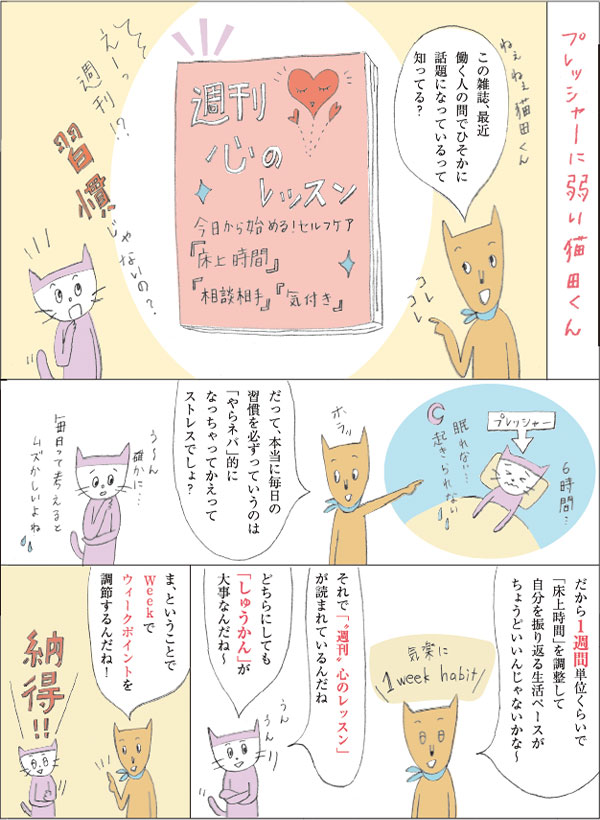 プレッシャーに弱い猫田くん
ねぇねぇ猫田くん
この雑誌、最近
働く人の間でひそかに
話題になっているって
知ってる?
コレ
コレ
週刊
心の
レッスン
今日から始める!セルフケア
『床上時間』
『相談相手』『気付き』
えーっ
週刊!?
習慣
じゃないの?
プレッシャー
6時間…
眠れない…
起きられない
ホラッ
だって、本当に毎日の
習慣を必ずっていうのは
「やらネバ」的に
なっちゃってかえって
ストレスでしょ?
う〜ん
確かに…
毎日って考えると
ムズかしいよね
だから1週間単位くらいで
「床上時間」を調整して
自分を振り返る生活ペースが
ちょうどいいんじゃないかな〜
気楽に
1 week habit
それで「〝週刊〟心のレッスン」
が読まれているんだね
うん
うん
どちらにしても
「しゅうかん」が
大事なんだね〜
ま、ということで
Weekで
ウィークポイントを
調節するんだね!
納得!!